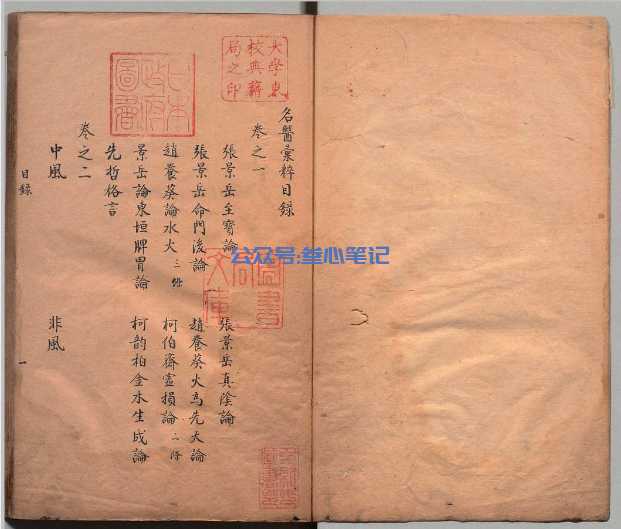 大學東
校典籍
局之印
日本
政府
圖書
名醫彙粹目錄
卷之一
張景岳至寶論 張景岳真陰論
張景岳命門後論 趙養葵火為先天論
趙養葵論水火 三條 柯伯齋虛損論 二條
景岳論東垣脾胃論 柯韵柏金水生成論
先哲格言
卷之二
中風 非風
目錄 一
圖書
局
文庫
多紀氏
藏書印
公众号:叁心笔记